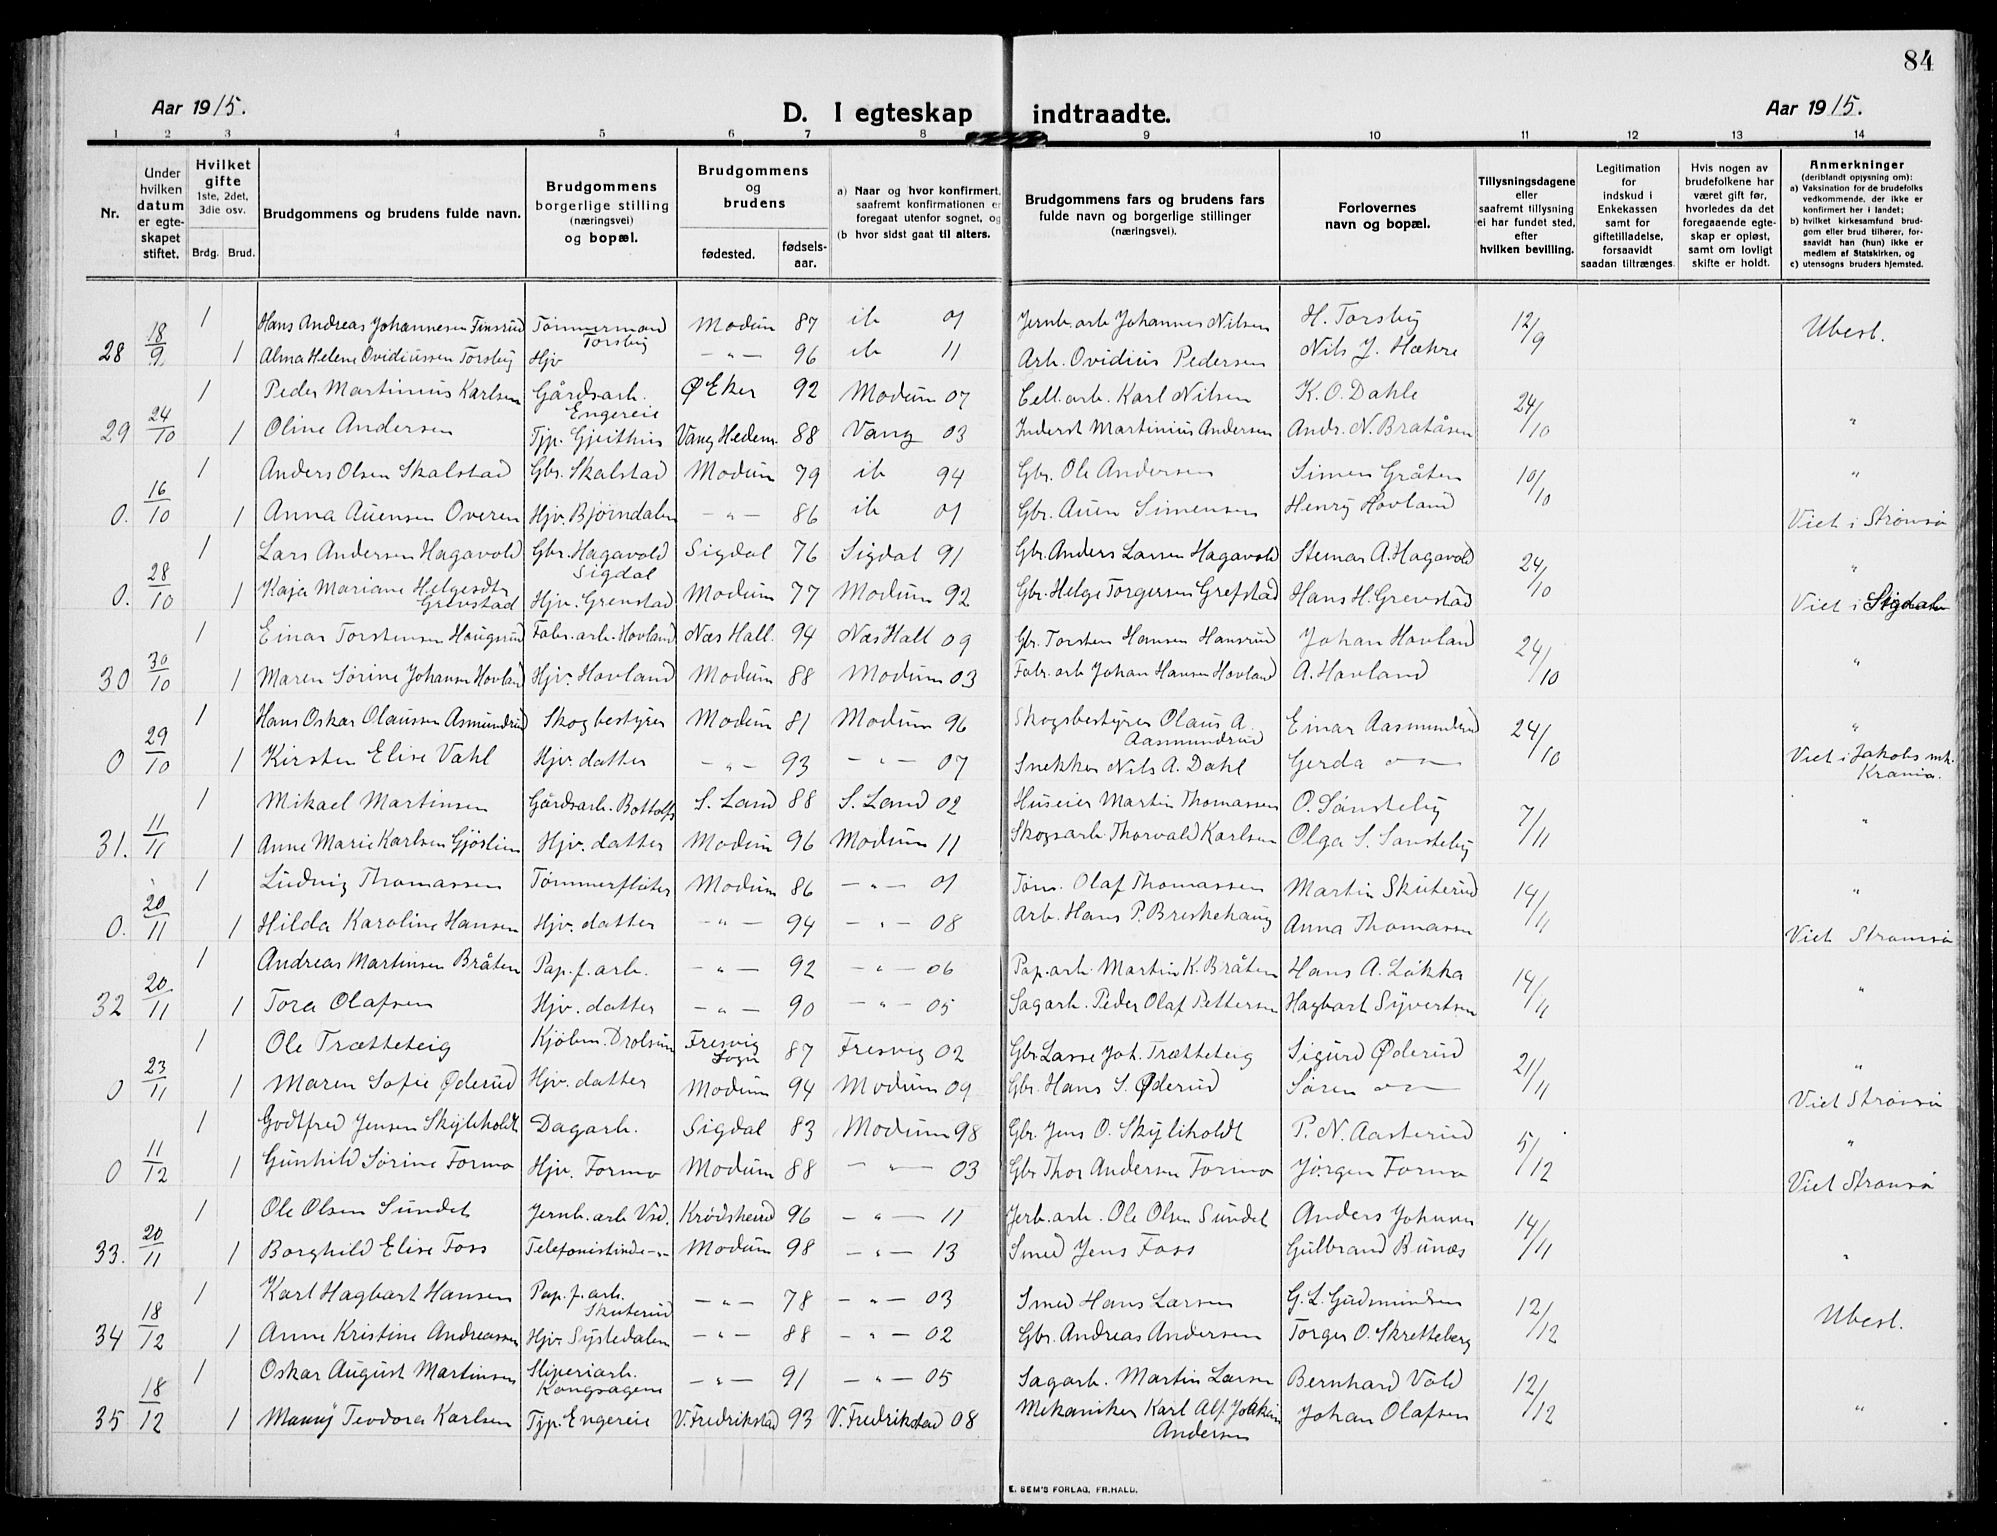 84
Aar 1915.
D. I egteskap indtraadte.
Aar 1915.
1 2 3 4 5 6 7 8 9 10 11 12 13 14
Nr.
Under hvilken datum er egteskapet stiftet.
Hvilket gifte 1ste, 2det, 3die osv. Brdg. Brud.
Brudgommens og brudens fulde navn.
Brudgommens borgerlige stilling (næringsvei) og bopæl.
Brudgommens og brudens fødested. fødselsaar.
a) Naar og hvor konfirmert, saafremt konfirmationen er foregaat utenfor sognet, og
(b hvor sidst gaat til alters.
Brudgommens fars og brudens fars fulde navn og borgerlige stillinger (næringsvei).
Forlovernes navn og bopæl.
Tillysningsdagene eller saafremt tillysning ei har fundet sted, efter hvilken bevilling.
Legitimation for indskud i Enkekassen samt for giftetilladelse, forsaavidt saadan tiltrænges.
Hvis nogen av brudefolkene har været gift før, hvorledes da det foregaaende egteskap er opløst, samt om lovligt skifte er holdt.
Anmerkninger (deriblandt opjysning om): a) Vaksination for de brudefolks vedkommende, der ikke er konfirmert her i landet; b) hvilket kirkesamfund brudgom eller brud tilhører, forsaavidt han (hun) ikke er medlem af Statskirken, og c) utensogns bruders hjemsted.
1 Hans Andreas Johannesen Finsrud Tømmermand Torsby Modum 87 ib 01 Jernb.arb Johannes Nilsen H. Torsby 12/9 Ubesl.
28 18/9 1 Alma Helene Ovidiussen Torsby Hjv -"- 96 ib 11 Arb. Ovidius Pedersen Nils J. Hæhre
1 Peder Martinius Karlsen Gårdsarb. Engereie Ø Eker 92 Modum 07 Cell.arb. Karl Nilsen K. O. Dahle 24/10 "
29 24/10 1 Oline Andersen Tjp. Gjeithus Vang Hedem. 88 Vang 03 Inderst Martinius Andersen Ands. N. Bratåsen
1 Anders Olsen Skalstad Gbr. Skalstad Modum 79 ib 94 Gbr. Ole Andersen Simen Gråten 10/10 "
0. 16/10 1 Anna Auensen Overen Hjv. Bjørndalen -"- 86 ib 01 Gbr. Auen Simensen Henry Hovland Viet i Strømsø
1 Lars Andersen Hagavold Gbr. Hagavold Sigdal Sigdal 76 Sigdal 91 Gbr. Anders Larsen Hagavold Steinar A. Hagavold 24/10 "
0. 28/10 1 Kaja Mariane Helgesdtr Grenstad Hjv. Grenstad Modum 77 Modum 92 Gbr. Helge Torgersen Grefstad Hans H. Grenstad Viet i Sigdalen
1 Einar Torstensen Haugsrud Fabr.arb. Hovland Næs Hall. 94 Næs Hall 09 Gbr. Torsten Hansen Hansrud Johan Hovland 24/10 "
30 30/10 1 Maren Sørine Johansen Hovland Hjv. Hovland Modum 88 Modum 03 Fabr.arb Johan Hansen Hovland A. Hovland
1 Hans Oskar Olaussen Asmundrud Skogbestyrer Modum 81 Modum 96 Skogsbestyrer Olaus A. Aasmundrud Einar Aasmundrud 24/10 "
0 29/10 1 Kirsten Elise Dahl Hjv. datter -"- 93 -"- 07 Snekker Nils A. Dahl Gerda Viet i Jakobs mk. Krania.
1 Mikael Martinsen Gårdsarb. Bottolfs S. Land 88 S. Land 02 Huseier Martin Thomassen O. Sønsteby 7/11 "
31. 11/11 1 Anne Marie Karlsen Gjøslien Hjv. datter Modum 96 Modum 11 Skogsarb. Thorvald Karlsen Olga S. Sønsteby
1 Ludvig Thomassen Tømmerfløter Modum 86 -"- 01 Tøm. Olaf Thomassen Martin Skuterud 14/11 "
0. 20/11 1 Hilda Karoline Hansen Hjv. datter -"- 94 -"- 08 Arb. Hans P. Breskehaug Anna Thomassen Viet Strømsø
1 Andreas Martinsen Bråten Pap.f.arb. -"- 92 -"- 06 Pap.arb. Martin K. Bråten Hans A. Løkka 14/11 "
32 20/11 1 Tora Olafsen Hjv. datter -"- 90 -"- 05 Sagarb. Peder Olaf Pettersen Hagbart Syvertsen
1 Ole Trætteteig Kjøbm. Drolsum Fresvig Sogn 87 Fresvig 02 Gbr Lasse Joh. Trætteteig Sigurd Øderud 21/11 "
0 23/11 1 Maren Sofie Øderud Hjv. datter Modum 94 Modum 09 Gbr. Hans S. Øderud Søren Viet Strømsø
1 Godtfred Jensen Skyliholdt Dagarb. Sigdal 83 Modum 98 Gbr. Jens O. Skyliholdt P. N. Aasterud 5/12 "
0 11/12 1 Gunhild Sørine Formo Hjv. Formo Modum 88 -"- 03 Gbr Thor Andersen Formo Jørgen Formo Viet Strømsø
1 Ole Olsen Sundet Jernb.arb Krødsherred 96 -"- 11 Jerb.arb. Ole Olsen Sundet Anders 14/11 "
33. 20/11 1 Borghild Elise Foss Telefonistinde -"- Modum 98 -"- 13 Smed Jens Foss Gulbrand Bunæs
1 Karl Hagbart Hansen Pap.f.arb. Skuterud -"- 78 -"- 03 Smed Hans Larsen G. L. Gudmundsen 12/12 Ubesl.
34 18/12 1 Anne Kristine Andreassen Hjv. Sysledalen -"- 88 -"- 02 Gbr. Andreas Andersen Torger O. Skretteberg
1 Oskar August Martinsen Sliperiarb. Kongsagene -"- 91 -"- 05 Sagarb. Martin Larsen Bernhard Vold 12/12 "
35 18/12 1 Manny Teodora Karlsen Tjp. Engereie V. Fredrikstad 93 V. Fredrikstad 08 Mekaniker Karl Alf Joakim Andersen Johan Olafsen
E. SEM'S FORLAG, FR.HALD.